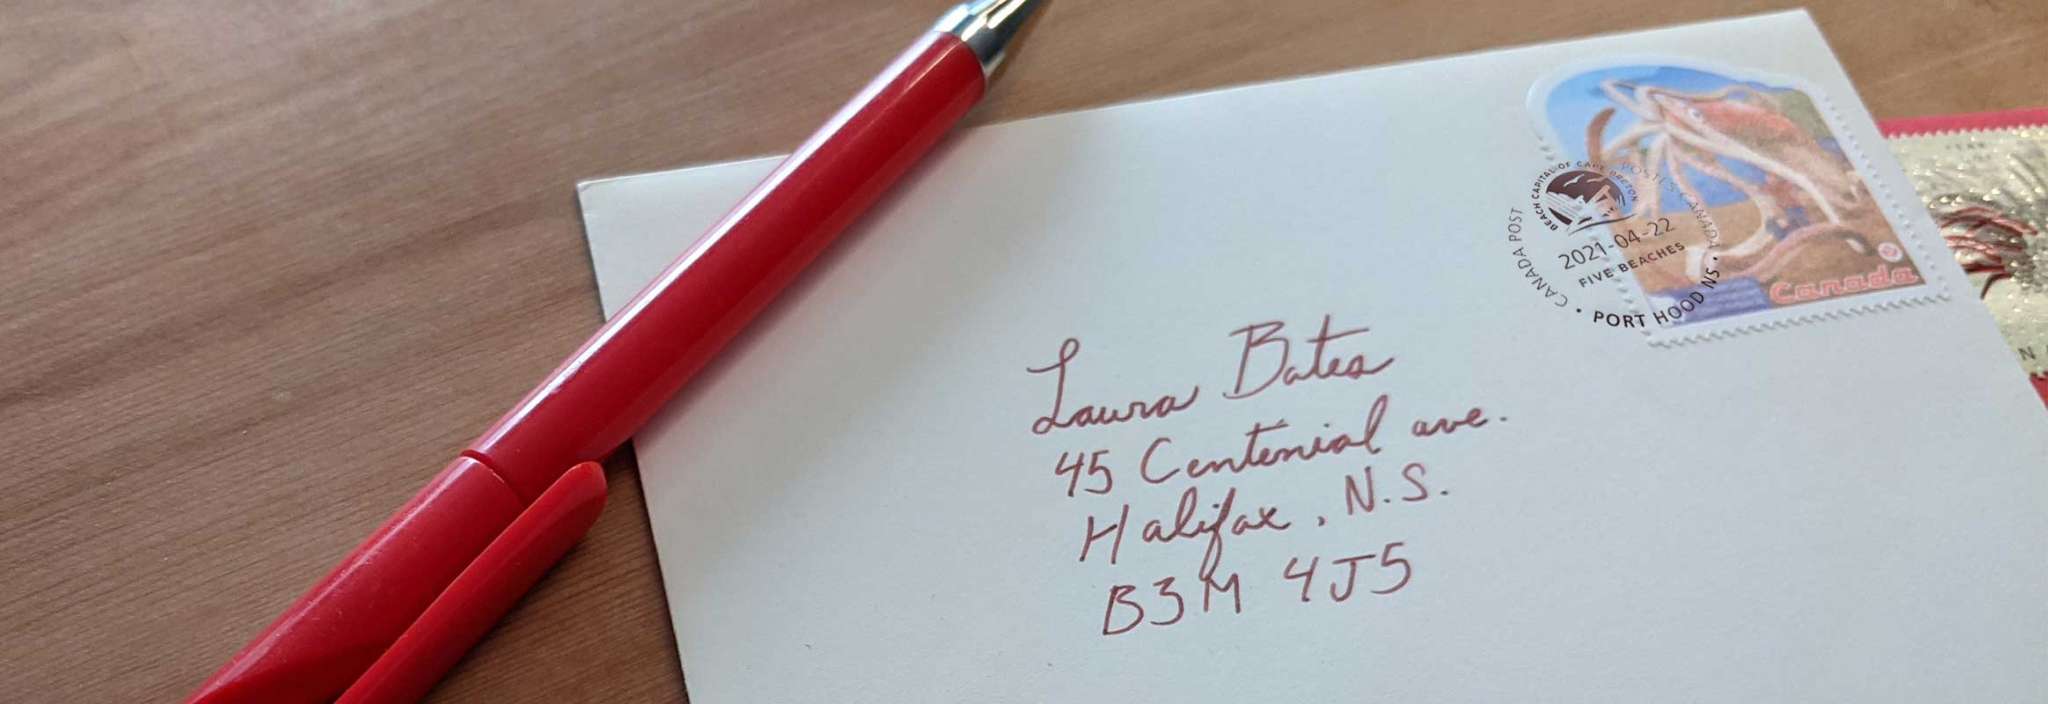 BEACH CAPITAL OF CAPE BRETON
POSTES CANADA
CANADA POST
2021-04-22
FIVE BEACHES
PORT HOOD NS
Canada
Laura Bates
45 Centenial ave.
Halifax, N.S.
B3M 4J5